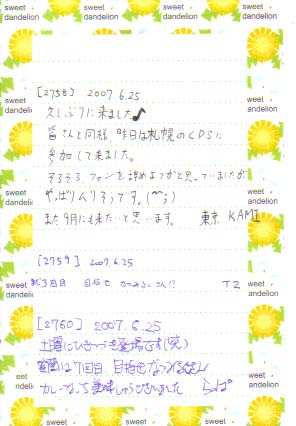 sweet dandelion
sweet dandelion
sweet dandelion
sweet dandelion
[2758] 2007.6.25
久しぶりに来ました♪
皆さんと同様、昨日は札幌のCDSに
参加して来ました。
そろそろファンを辞めようかと思っていましたが
やっぱりムリそうです。(^^;)
また9月にも来たいと思います。 東京 KAMI
[2759] 2007.6.25
まだ3回目 目指せ さん!? T2
[2760] 2007.6.25
土曜にひきつづき登場です(笑)
は7回目 目指せなつみるさん
カレー 美味しゅうございました らぱ
sweet dandelion
sweet dandelion
sweet dandelion
sweet dandelion